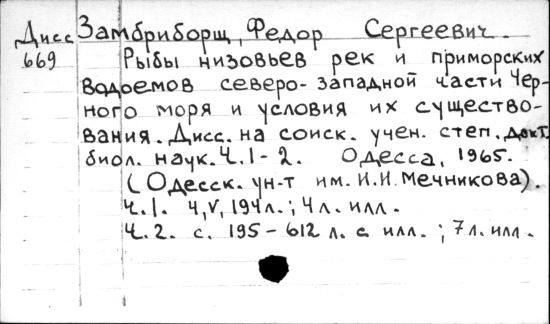 Дисс Замбриборщ, Федор Сергеевич.
669 Рыбы низовьев рек и приморских
водоемов северо-западной части Чер-
ного моря и условия их существо-
вания. Дисс. на соиск. учен. степ. докт.
биол. наук. Ч.1-2. Одесса, 1965.
(Одесск. ун-т им. И.И. Мечникова).
Ч.1. 4,V,194л.; 4л. илл.
Ч.2. с. 195-612 л. с илл.; 7л. илл.